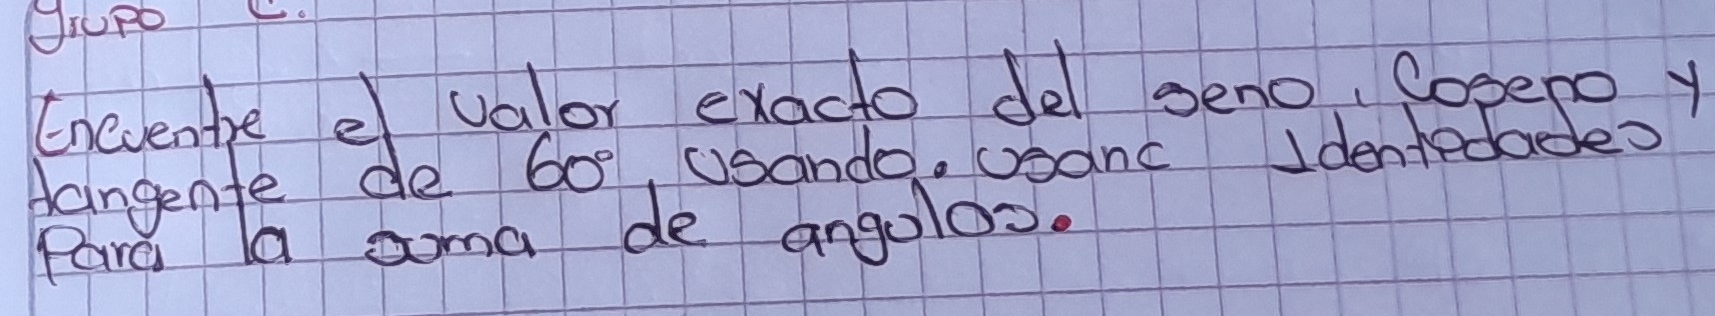 grupo C.
Encuentre el valor exacto del seno, Coseno y
tangente de 60°, Usando. usanc Identedades
Para la soma de angulos.